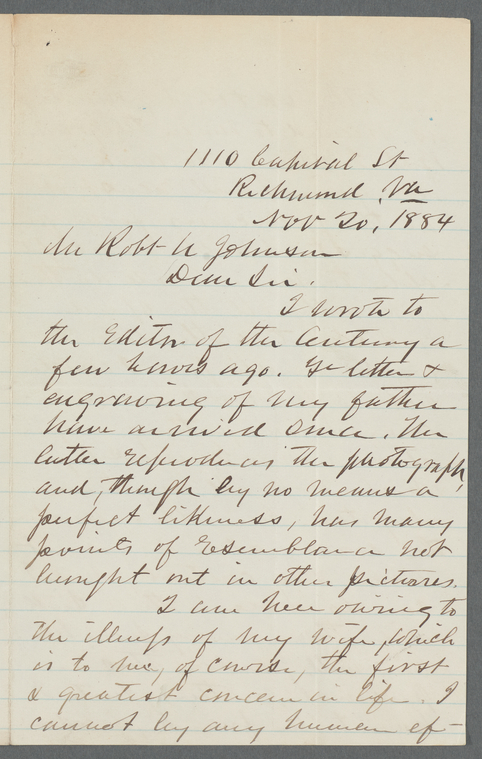 1110 Capitol St
Richmond, Va
Nov 20, 1884
Mr Robt U Johnson
Dear Sir.
I wrote to
the Editor of the Century a
few hours ago. Yr letter &
engraving of my father
have arrived since. The
latter reproduces the photograph,
and, though by no means a
perfect likeness, has many
points of resemblance not
brought out in other pictures.
I am here owing to
the illness of my wife, which
is to me, of course, the first
& greatest concern in life. I
cannot by any human ef-